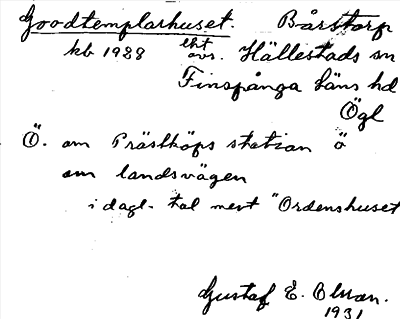 Goodtemplarhuset. Bårstorp
kb 1988 eht övs. Hällestads sn
Finspånga läns hd
Ögl
Ö. om Prästköps station ö
om landsvägen
i dagl. tal mest "Ordenshuset
Gustaf E. Olsson.
1931